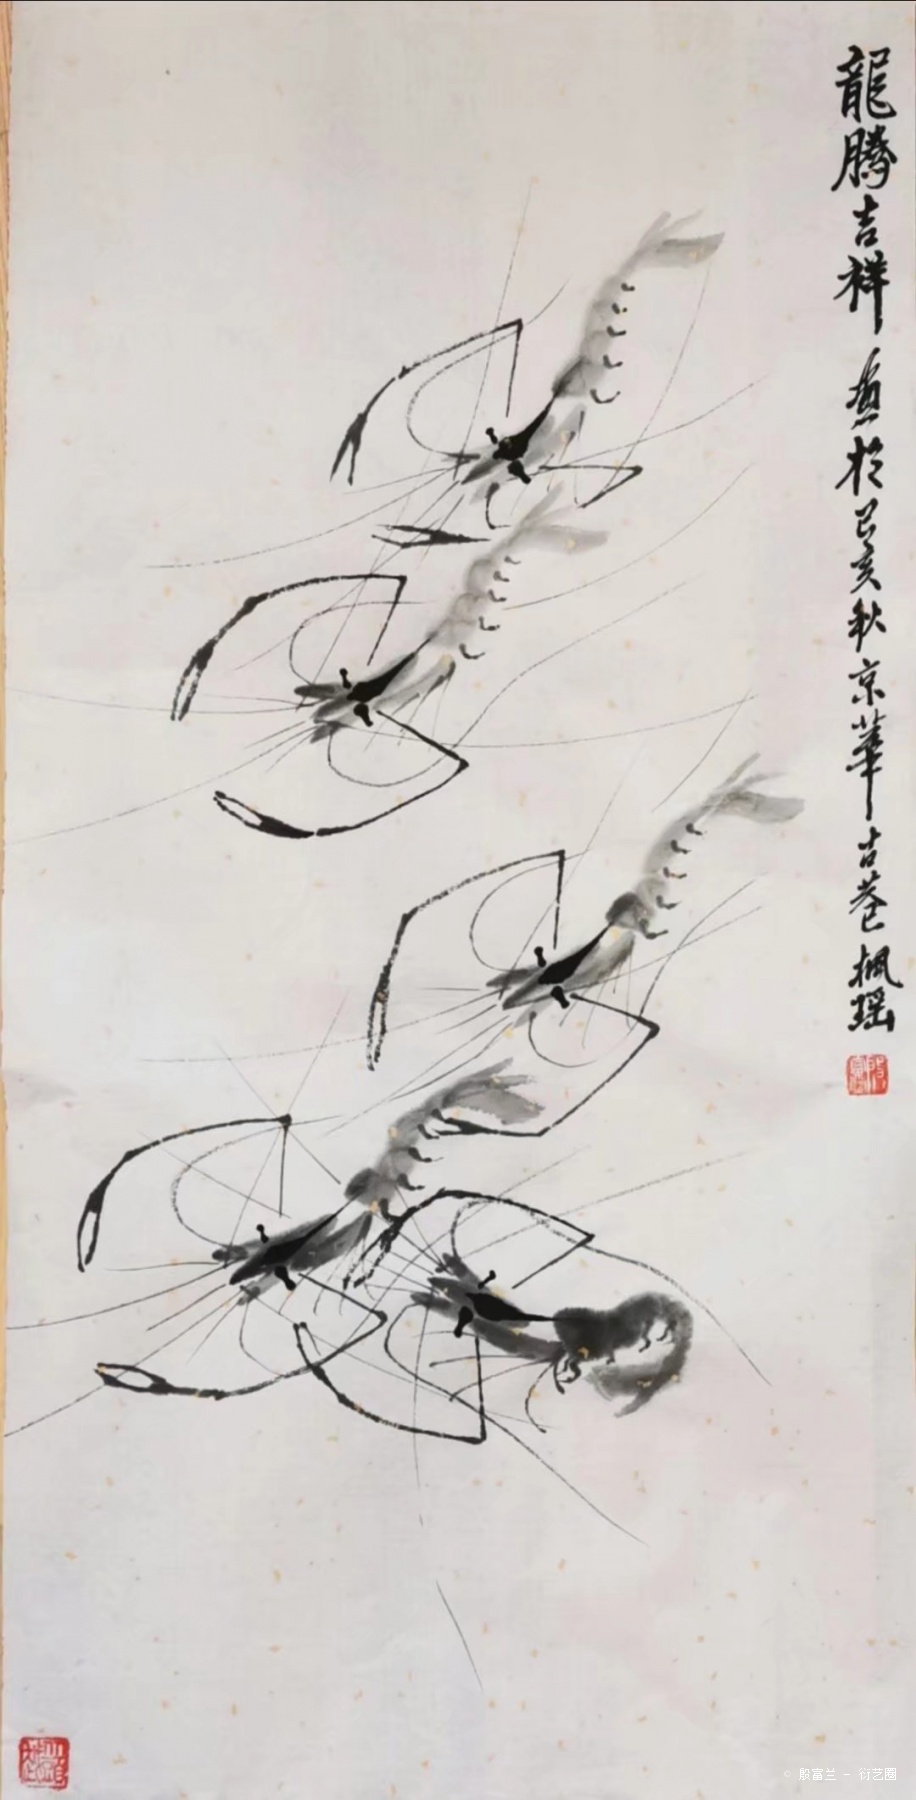 龍騰吉祥 畫於己亥秋京華吉巷楓瑶
© 殷富兰 - 衍艺圈